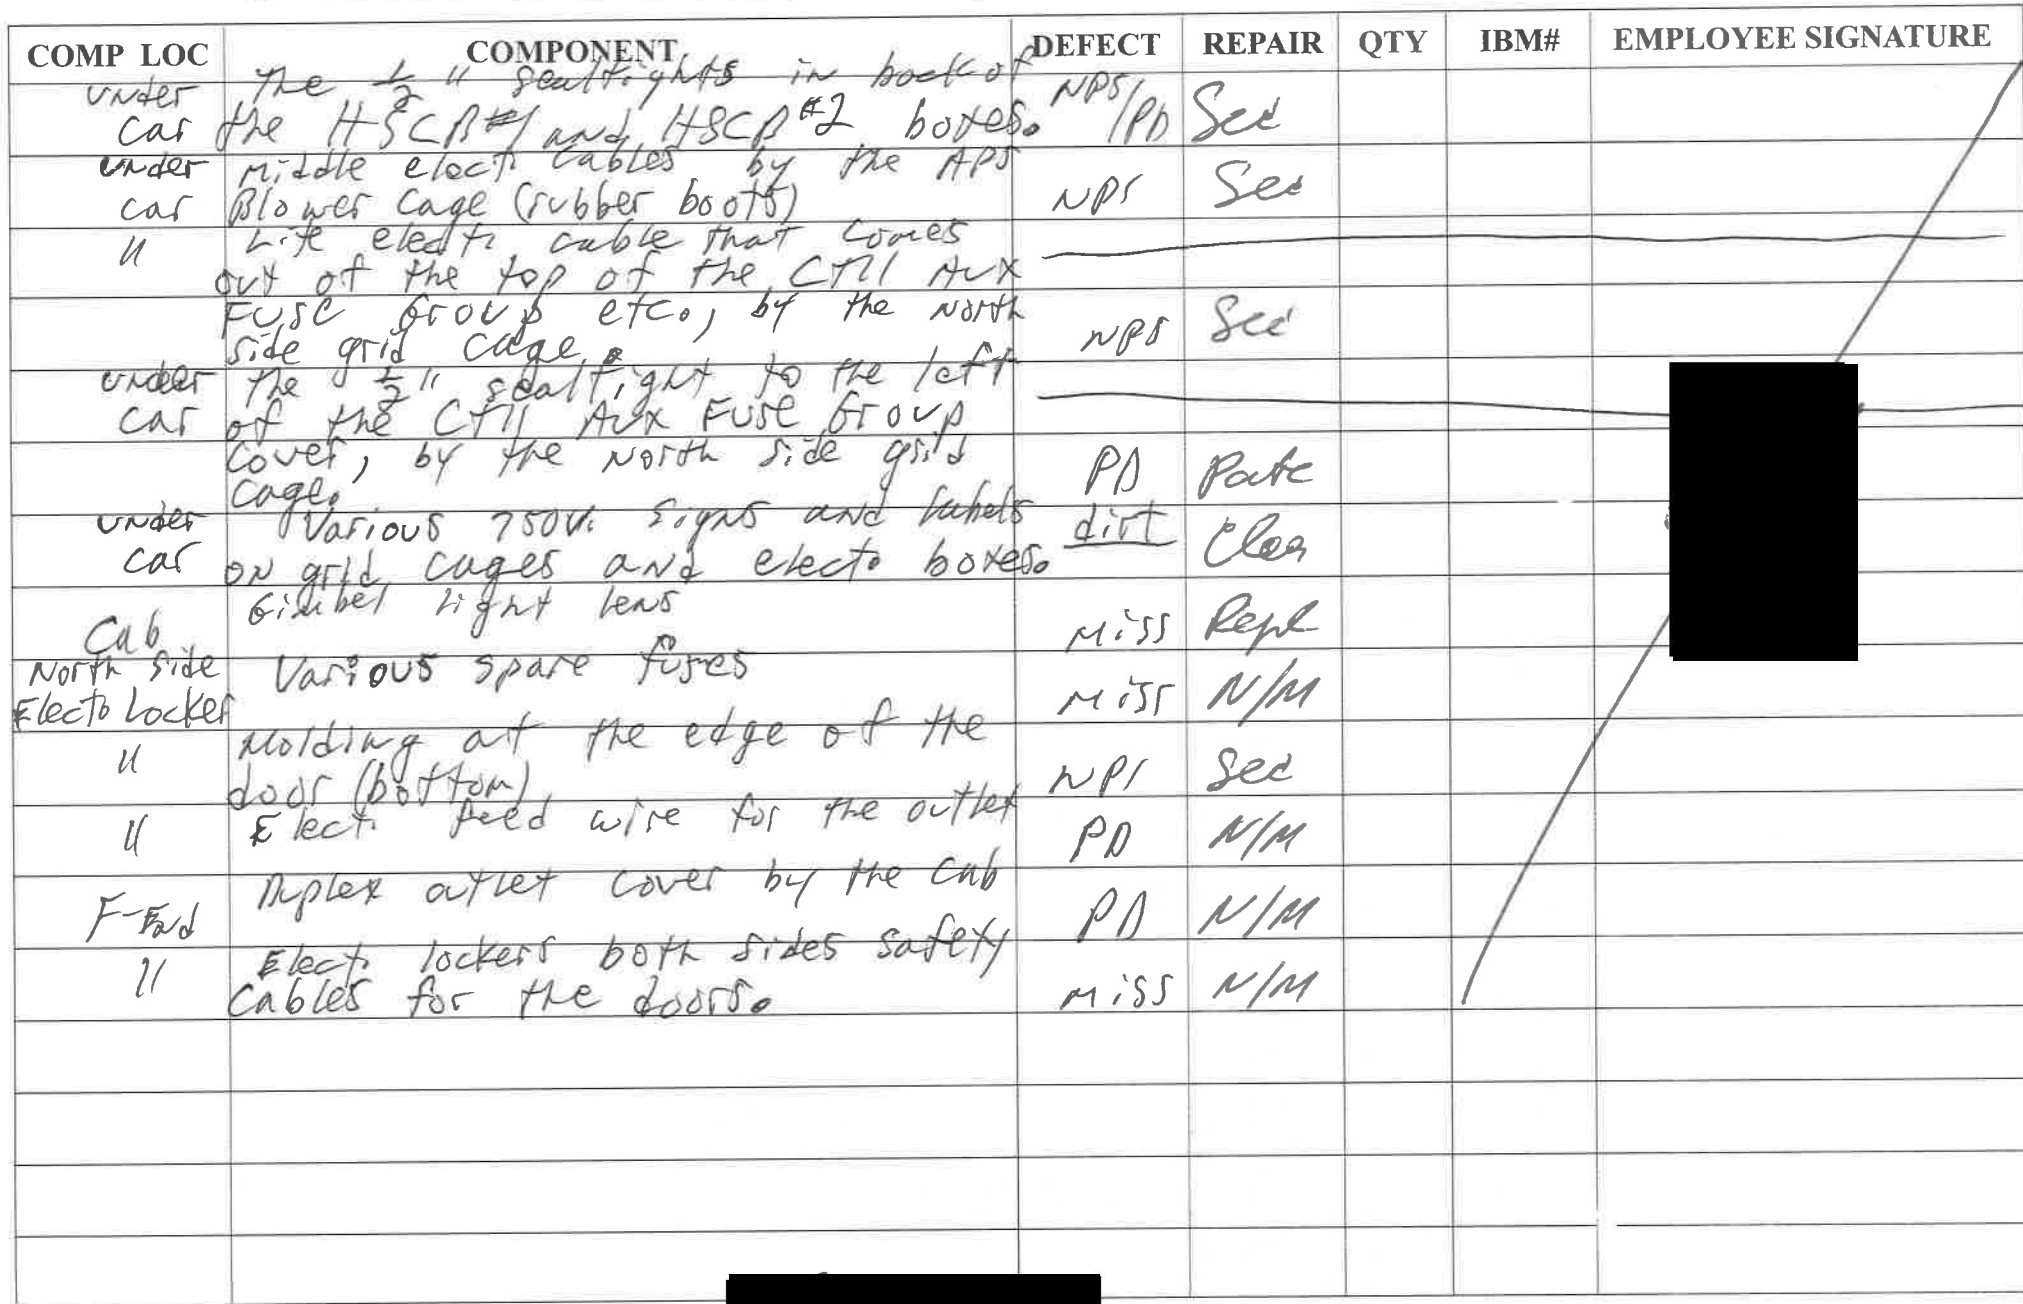 COMP LOC COMPONENT DEFECT REPAIR QTY IBM# EMPLOYEE SIGNATURE
under The 1/2" sealtights in back of NPS
car the HSCB#1 and HSCB#2 boxes. /PD Sec
under Middle elect. cables by the APS
car Blower Cage (rubber boots) NPS Sec
" elect. cable that comes
out of the top of the CTII Aux
Fuse Group etc., by the North
side grid cage. NPS Sec
under The 1/2" sealtight to the left
car of the CTII Aux Fuse Group
cover, by the North side grid PD
cage.
under Various 750V. signs and labels dirt
car on grid cages and elect. boxes. Clea
Cab Gimbel Light lens Miss Repl
North side Various spare fuses
Elect. Locker Miss N/M
" Molding at the edge of the
door (bottom) NPS Sec
" Elect. feed wire for the outlet PD N/M
F-End Duplex outlet cover by the Cab PD N/M
" Elect. lockers both sides safety
cables for the doors. Miss N/M